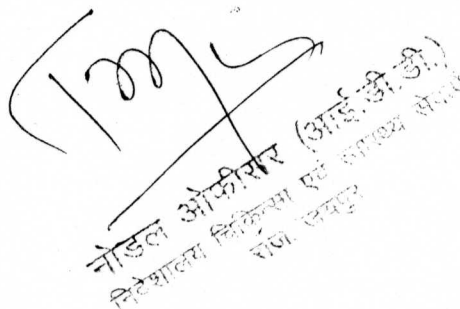 नोडल ऑफीसर (आई.डी.डी.)
निदेशालय चिकित्सा एवं स्वास्थ्य सेवायें
राज. जयपुर